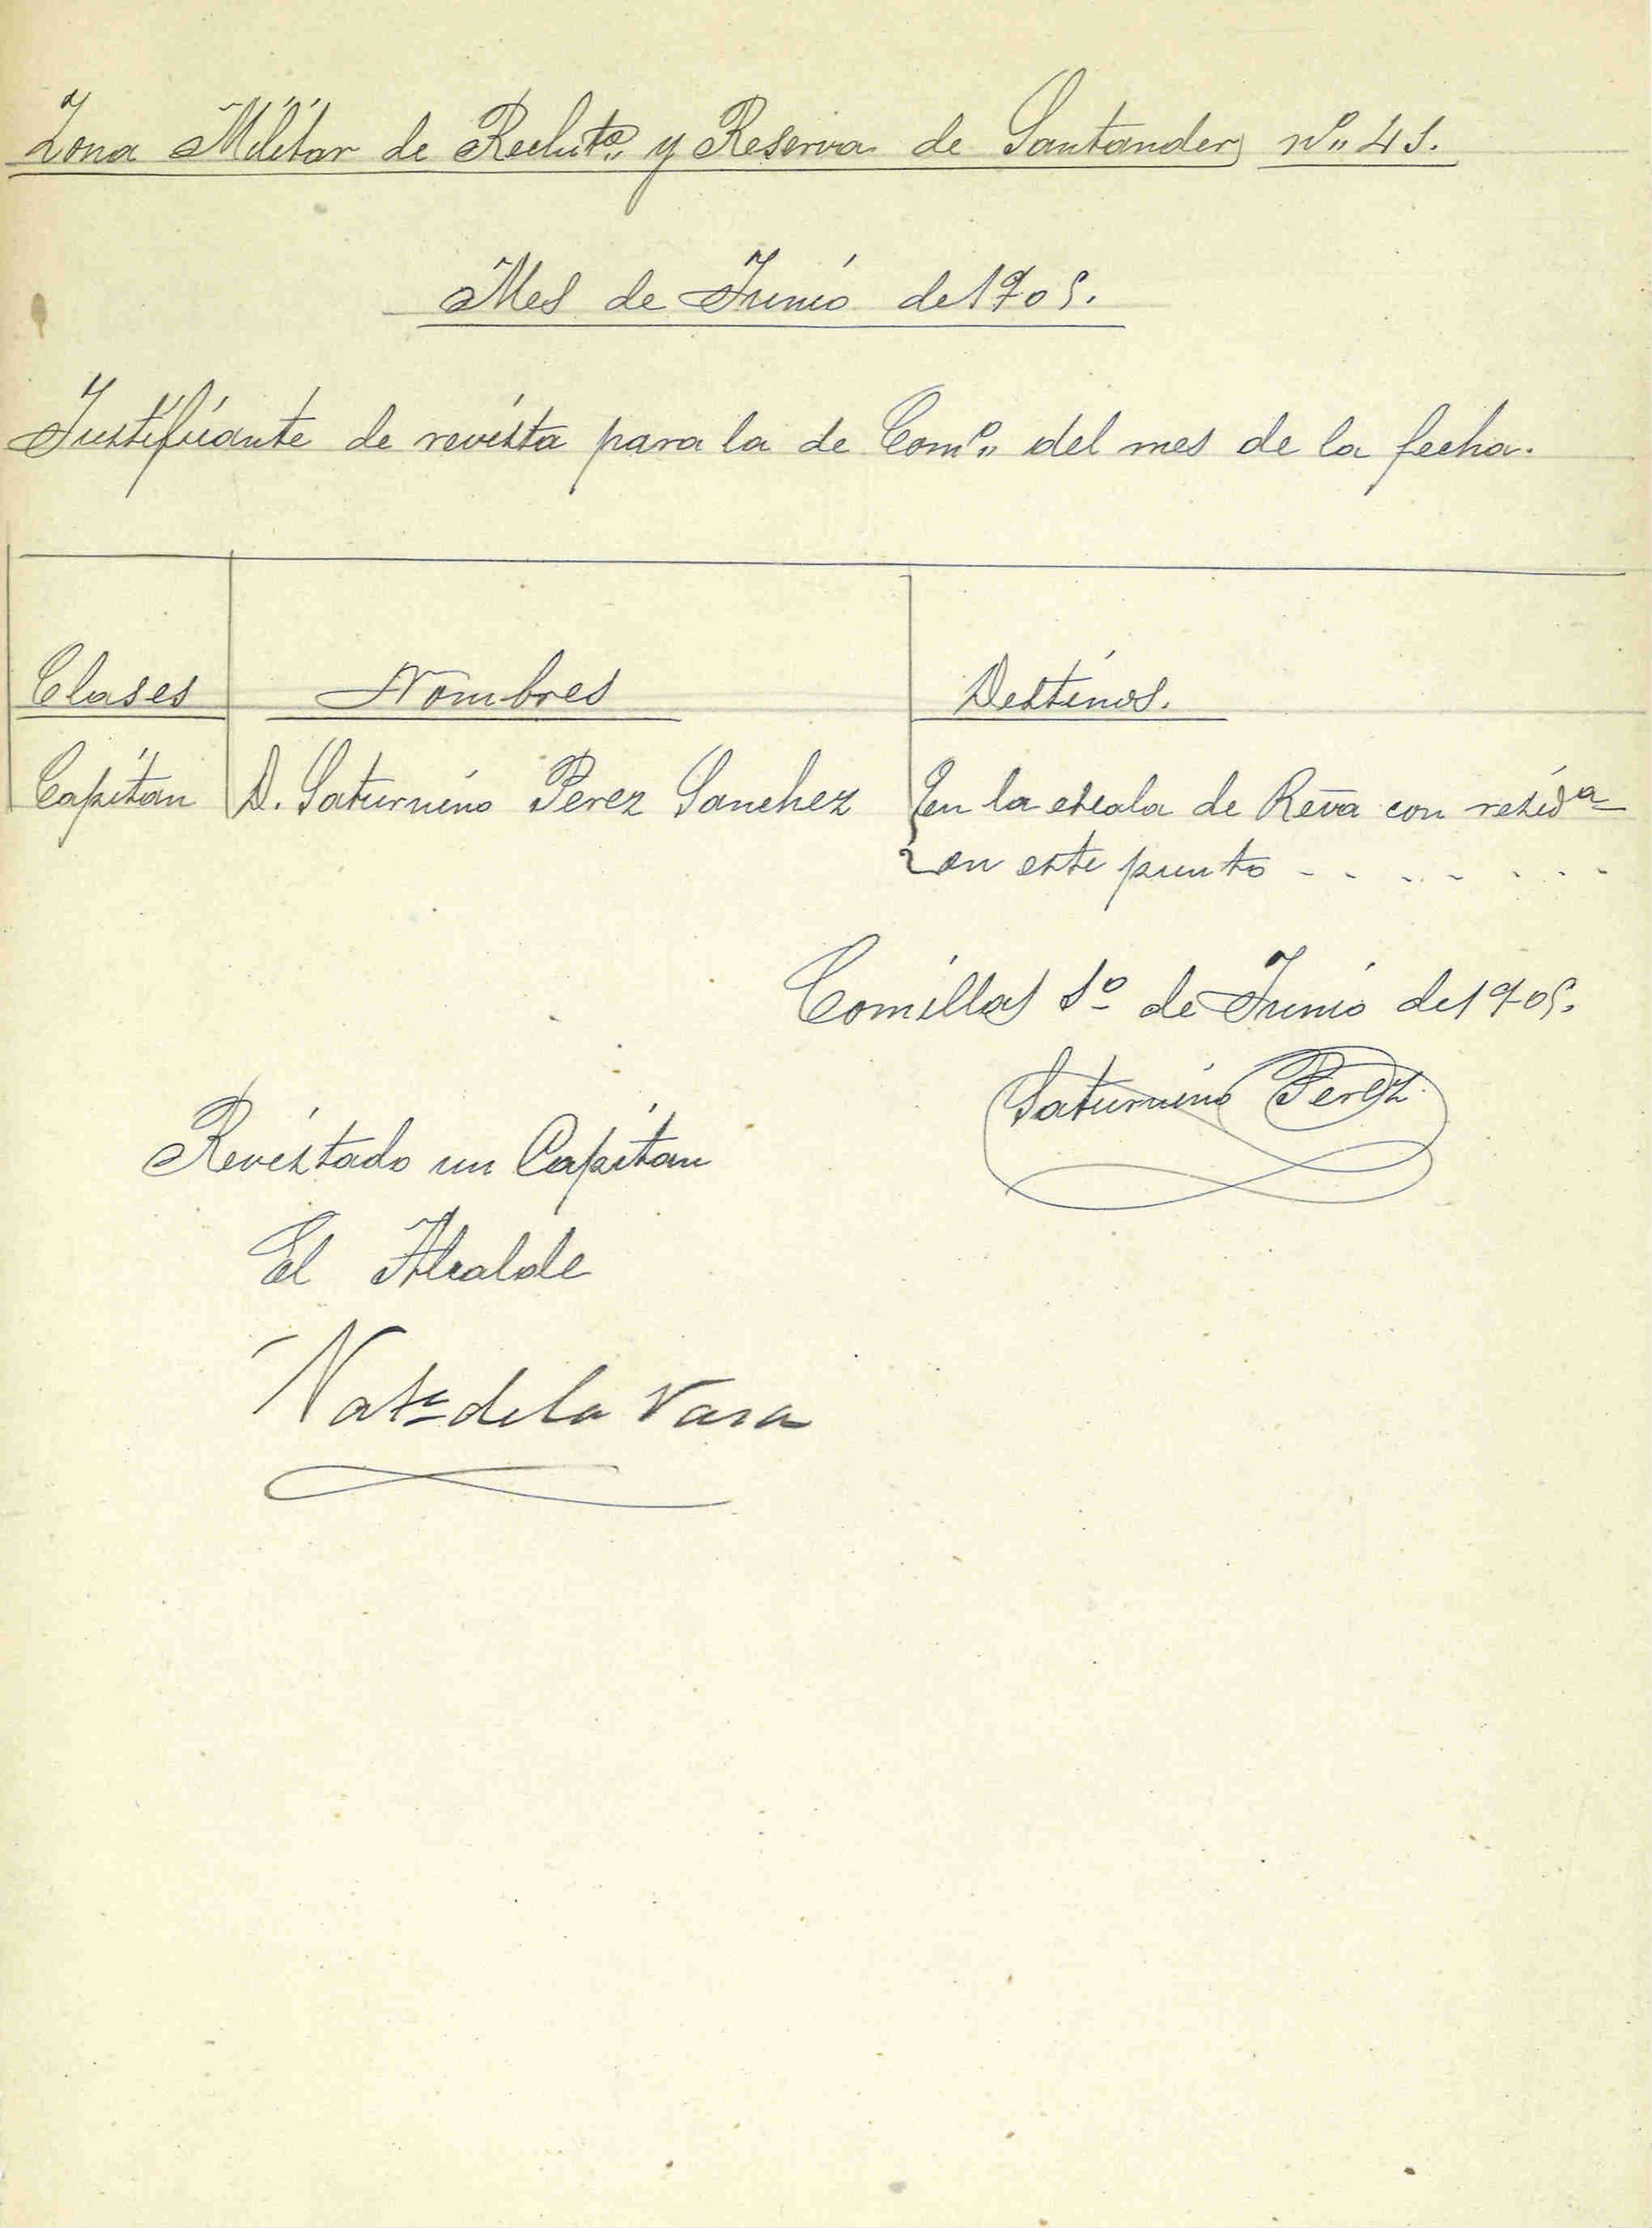 Zona Militar de Reclutº y Reserva de Santander nº 41.
Mes de Junio de 1905.
Justificante de revista para la de Comº del mes de la fecha.
Clases Nombres Destinos.
Capitan D. Saturnino Perez Sanchez En la escala de Reva con residª
en este punto - - - - - - -
Comillas 1º de Junio de 1905.
Saturnino Perez
Revistado un Capitan
El Alcalde
de la Vara